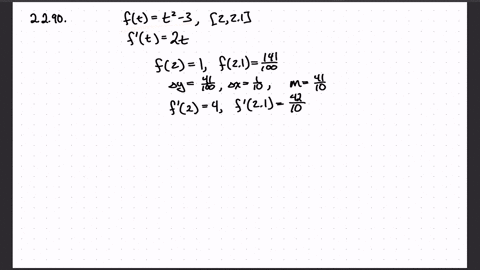 2.2.90. f(t) = t² - 3, [2, 2.1]
f'(t) = 2t
f(2) = 1, f(2.1) = 141/100
Δy = 41/100, Δx = 1/10, m = 41/10
f'(2) = 4, f'(2.1) = 42/10